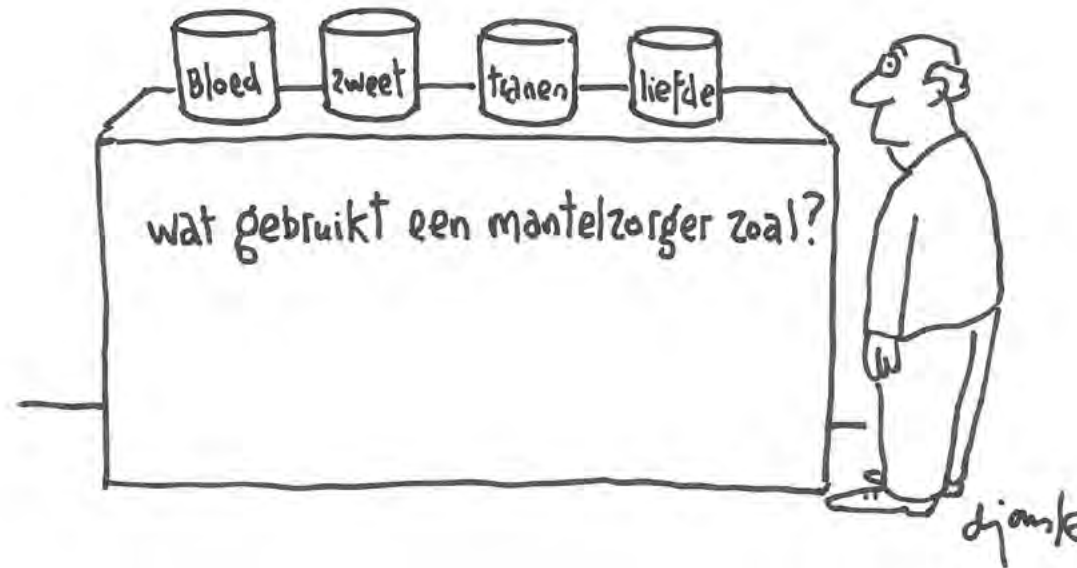 Bloed zweet tranen liefde
wat gebruikt een mantelzorger zoal?